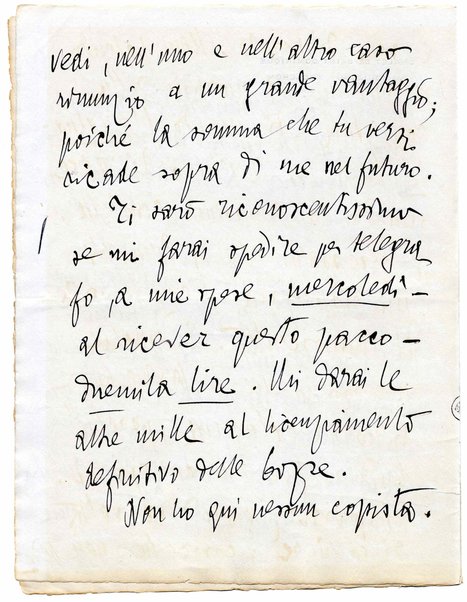 vedi, nell'uno e nell'altro caso
rinunzio a un grande vantaggio;
poiché la somma che tu versi
ricade sopra di me nel futuro.
Ti sarò riconoscentissimo
se mi farai spedire per telegra
fo, a mie spese, mercoledì –
al ricever questo pacco –
duemila lire. Mi darai le
altre mille al licenziamento
definitivo delle bozze.
Non ho qui nessun copista.